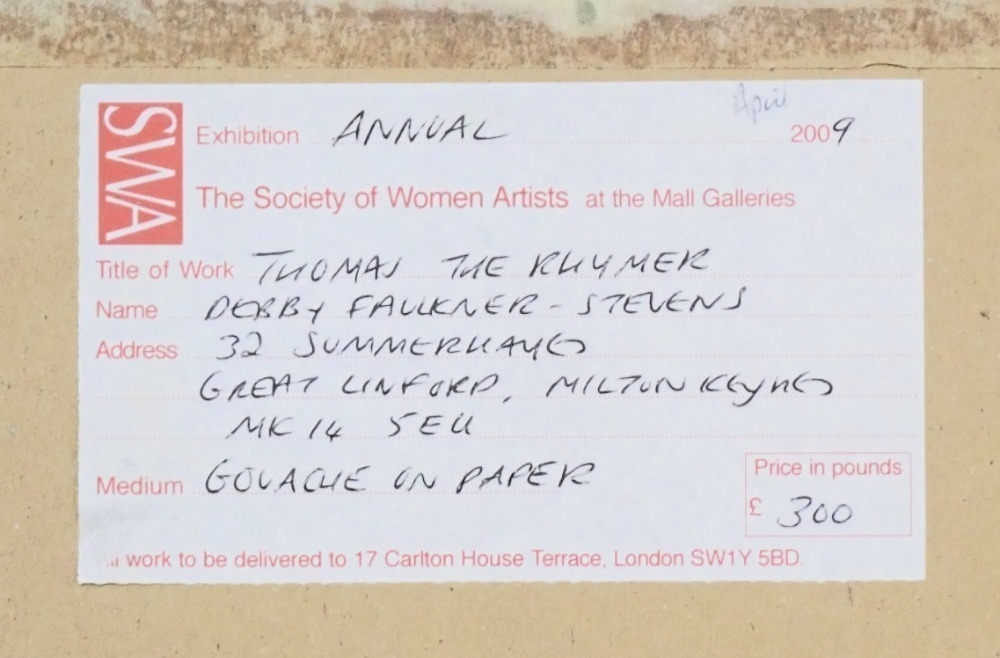 SWA
April
Exhibition ANNUAL 2009
The Society of Women Artists at the Mall Galleries
Title of Work THOMAS THE RHYMER
Name DEBBY FAULKNER-STEVENS
Address 32 SUMMERHAYES
GREAT LINFORD, MILTON KEYNES
MK14 5EU
Medium GOUACHE ON PAPER
Price in pounds
£ 300
work to be delivered to 17 Carlton House Terrace, London SW1Y 5BD.